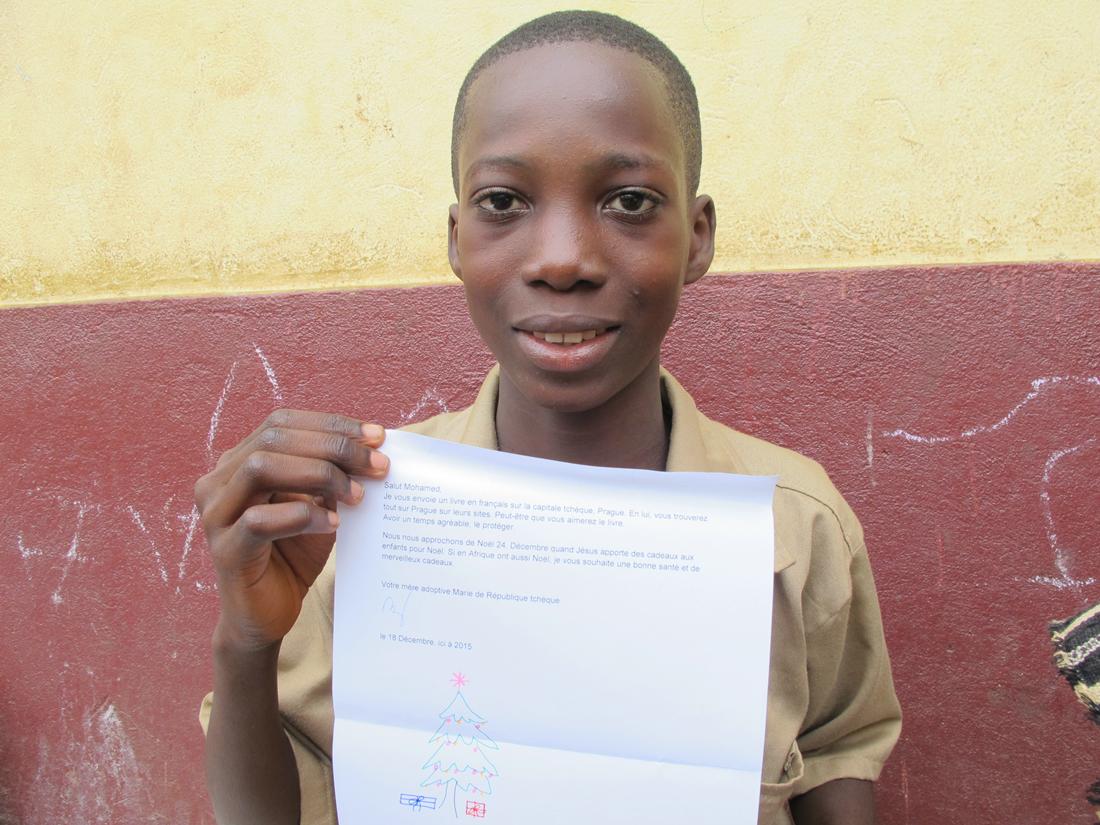 Salut Mohamed,
Je vous envoie un livre en français sur la capitale tchèque, Prague. En lui, vous trouverez
tout sur Prague sur leurs sites. Peut-être que vous aimerez le livre.
Avoir un temps agréable, le protéger.
Nous nous approchons de Noël 24. Décembre quand Jésus apporte des cadeaux aux
enfants pour Noël. Si en Afrique ont aussi Noël, je vous souhaite une bonne santé et de
merveilleux cadeaux.
Votre mère adoptive Marie de République tchèque
le 18 Décembre, ici à 2015